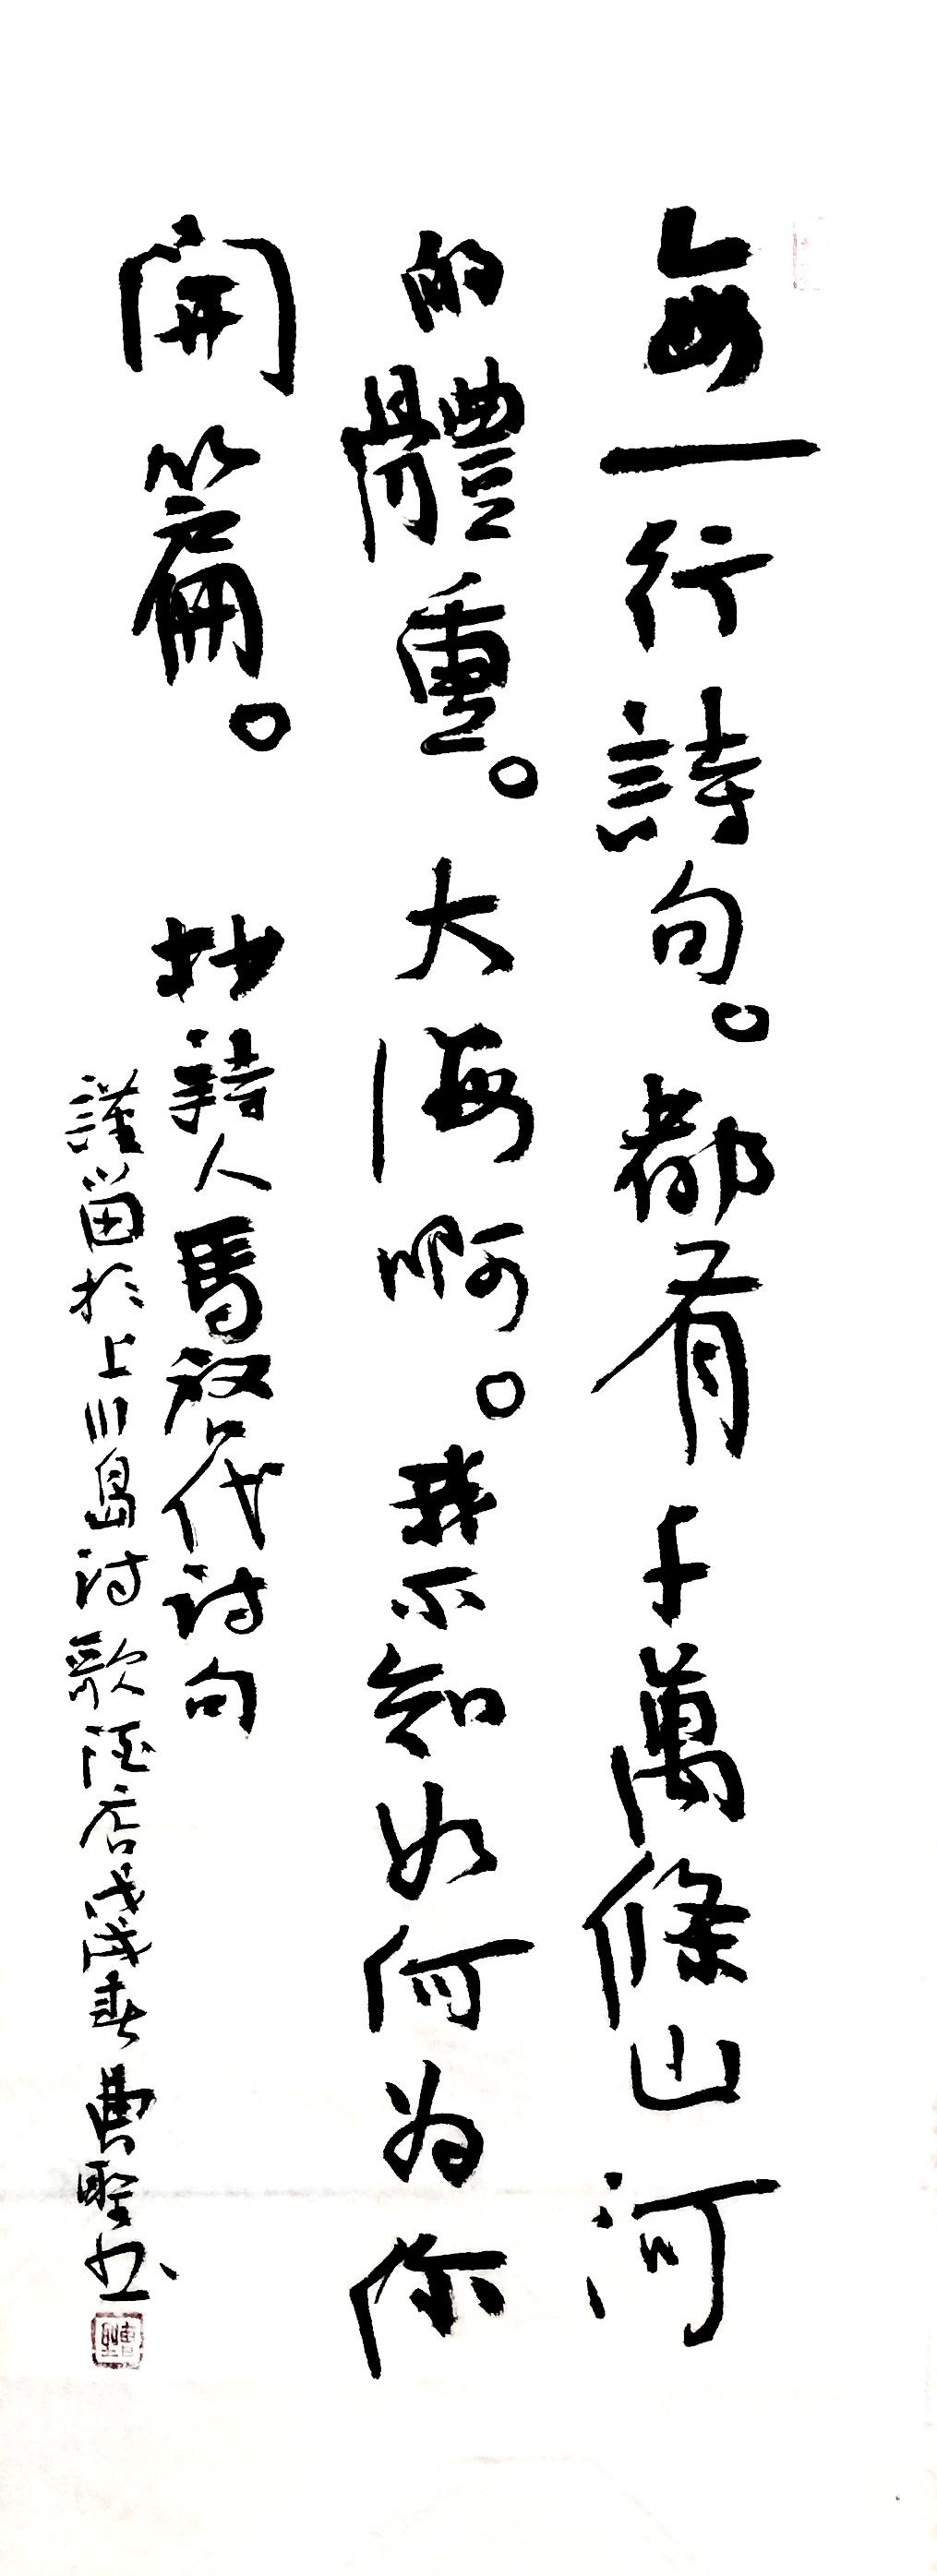 每一行詩句。都有千萬條山河
的體重。大海啊。我不知如何为你
開篇。
抄詩人馬啓代诗句
謹留於上川島诗歌酒店戊戌春 曹聖书